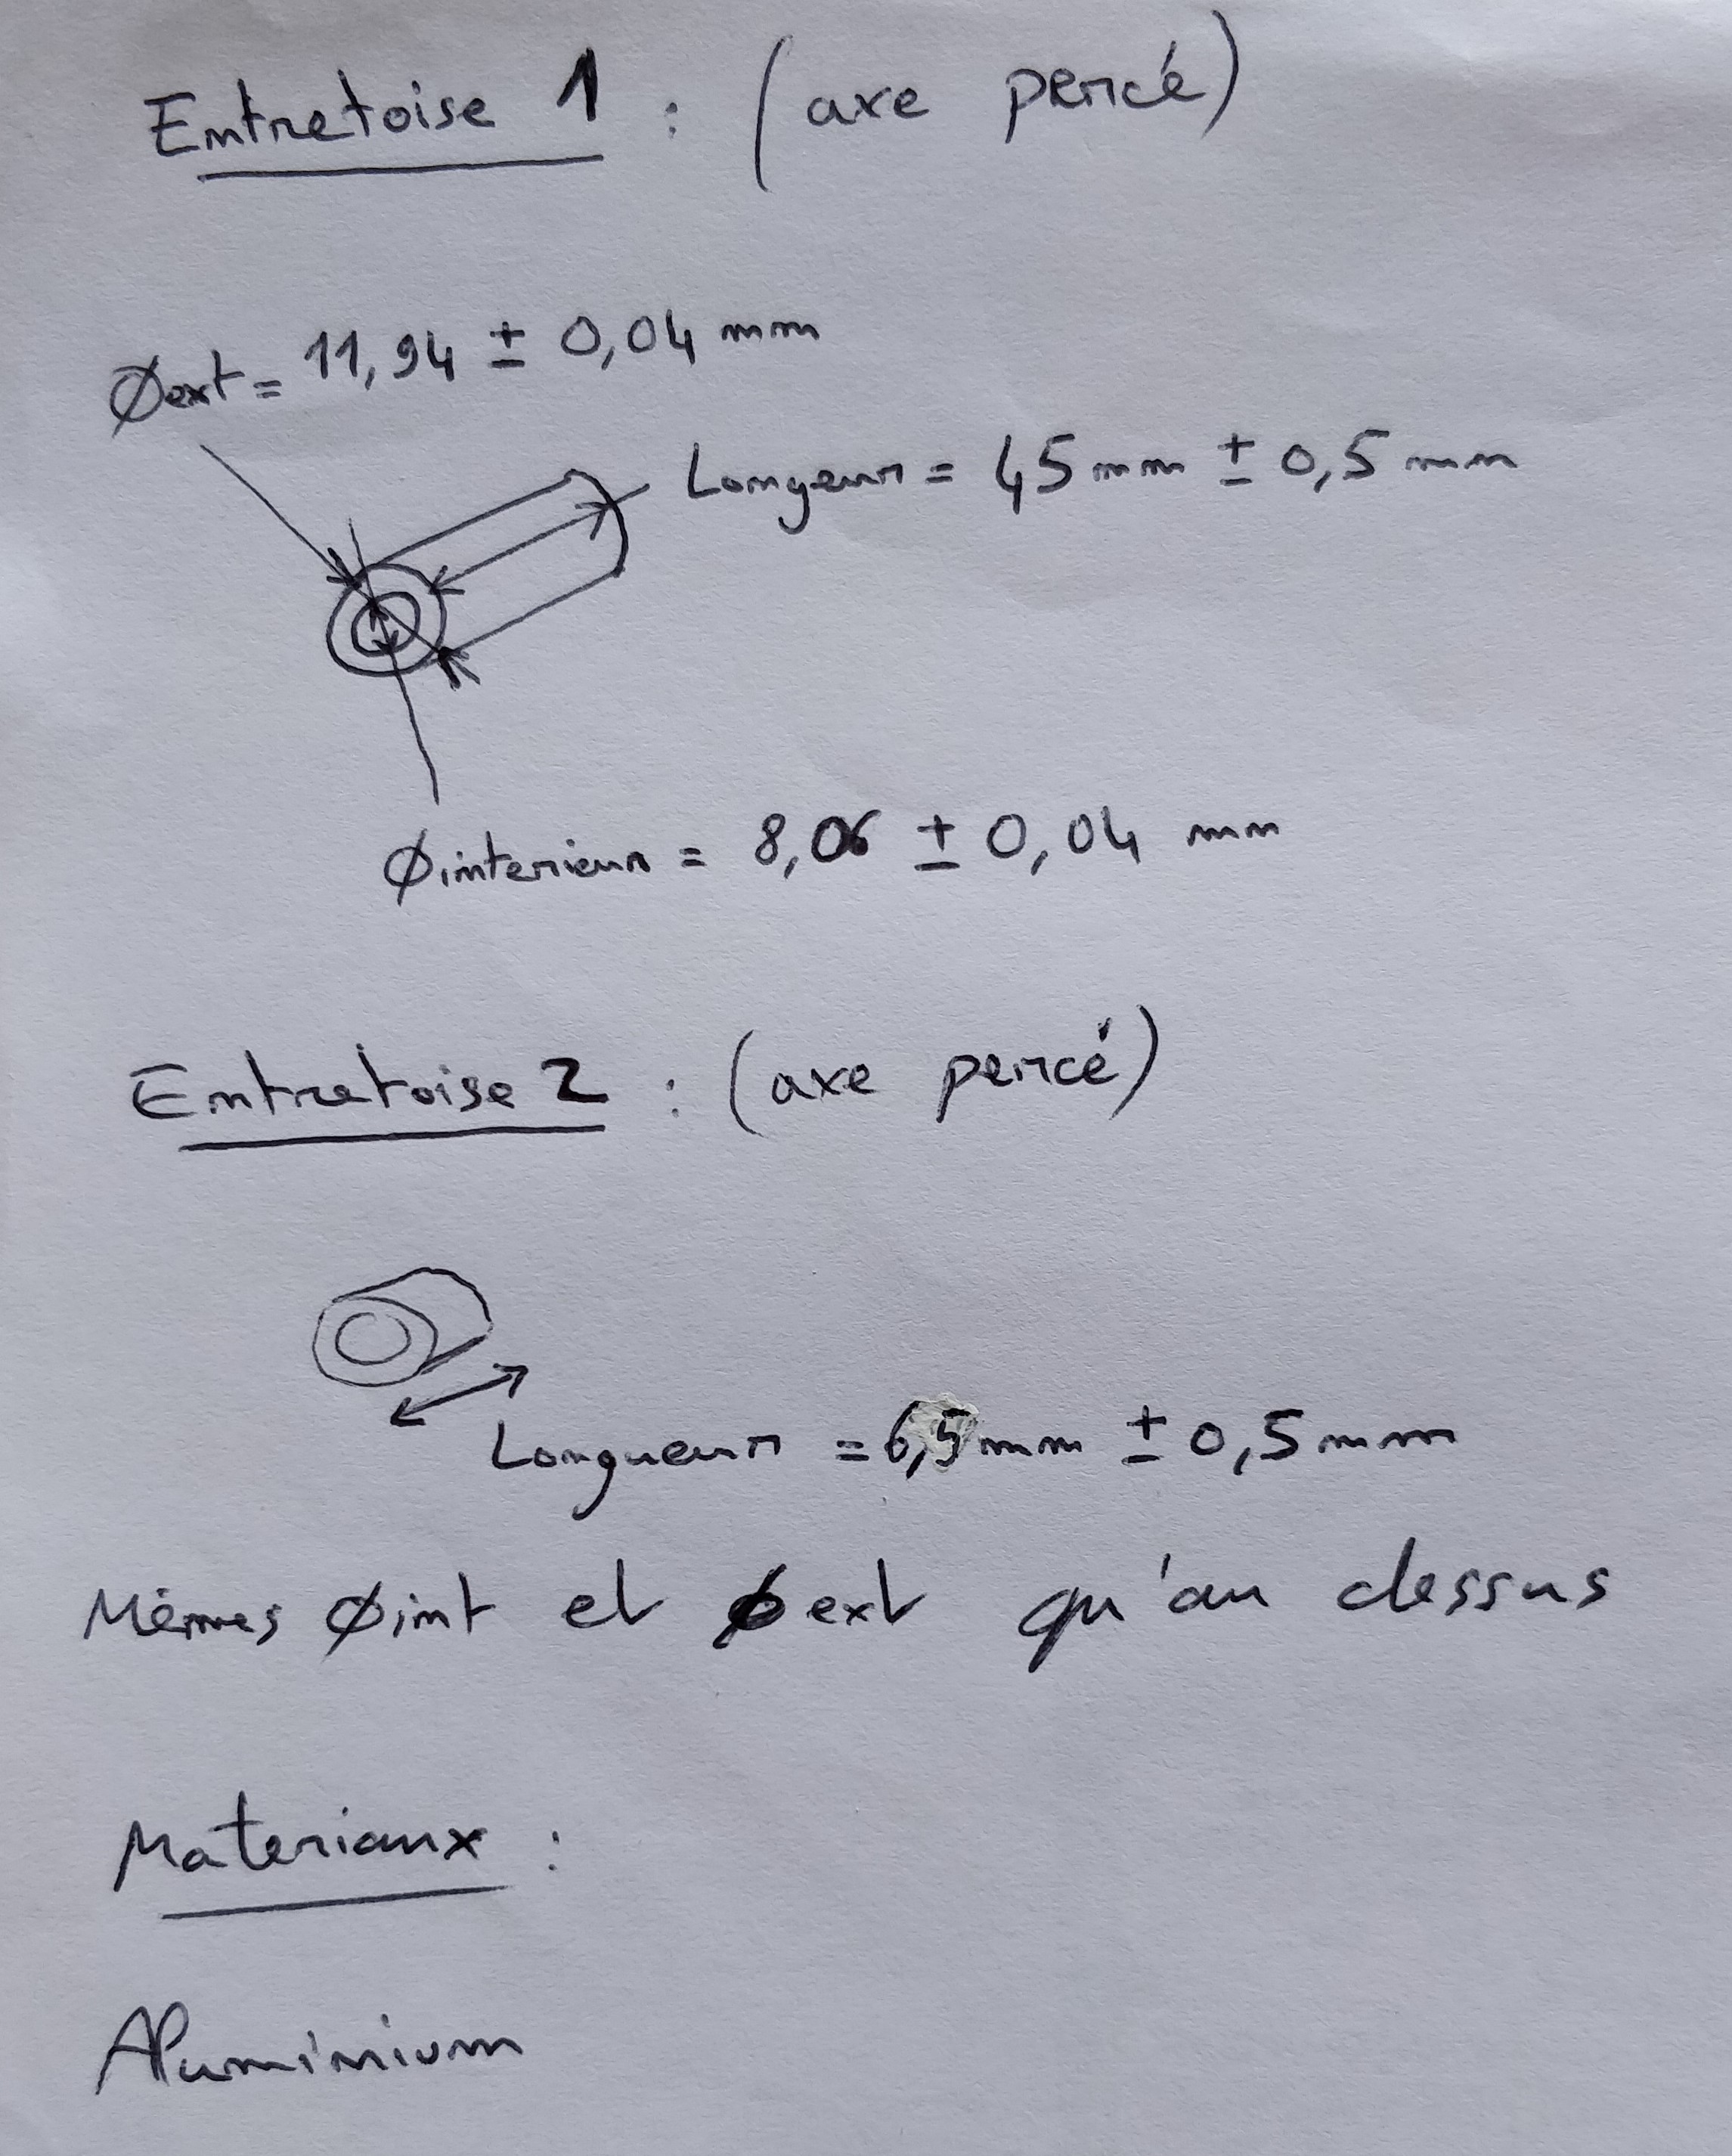 Entretoise 1 : (axe percé)
Øext = 11,94 ± 0,04 mm
Longeur = 45 mm ± 0,5 mm
Øinterieur = 8,06 ± 0,04 mm
Entretoise 2 : (axe percé)
Longueur = 6,5 mm ± 0,5 mm
Mêmes Øint et Øext qu'au dessus
Materiaux :
Aluminium